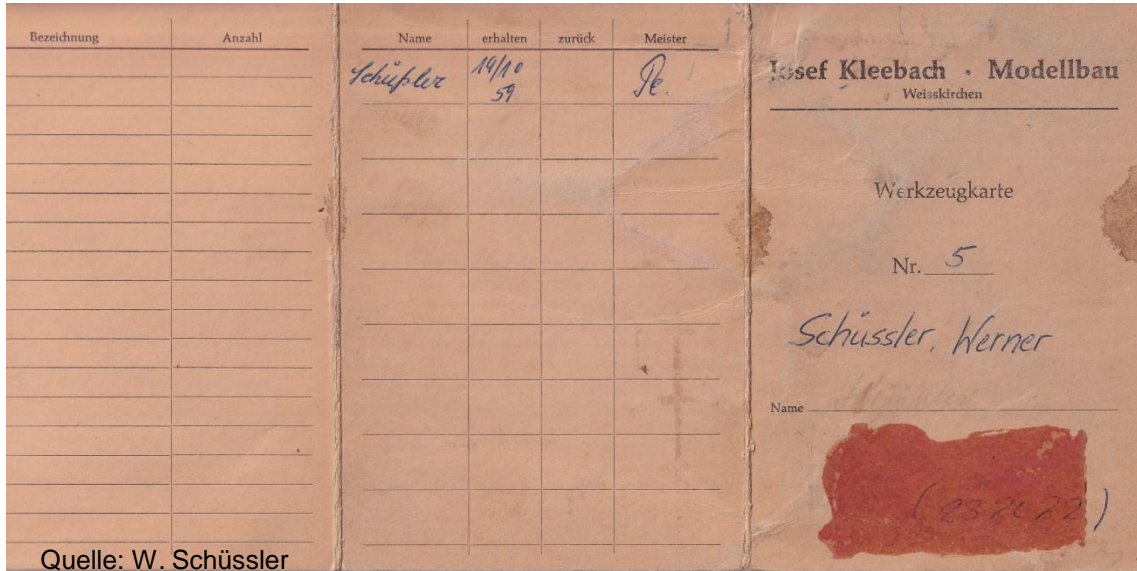 Bezeichnung Anzahl
Name erhalten zurück Meister
Schüßler 19/10 59
Josef Kleebach · Modellbau
Weisskirchen
Werkzeugkarte
Nr. 5
Schüssler, Werner
Name
Quelle: W. Schüssler